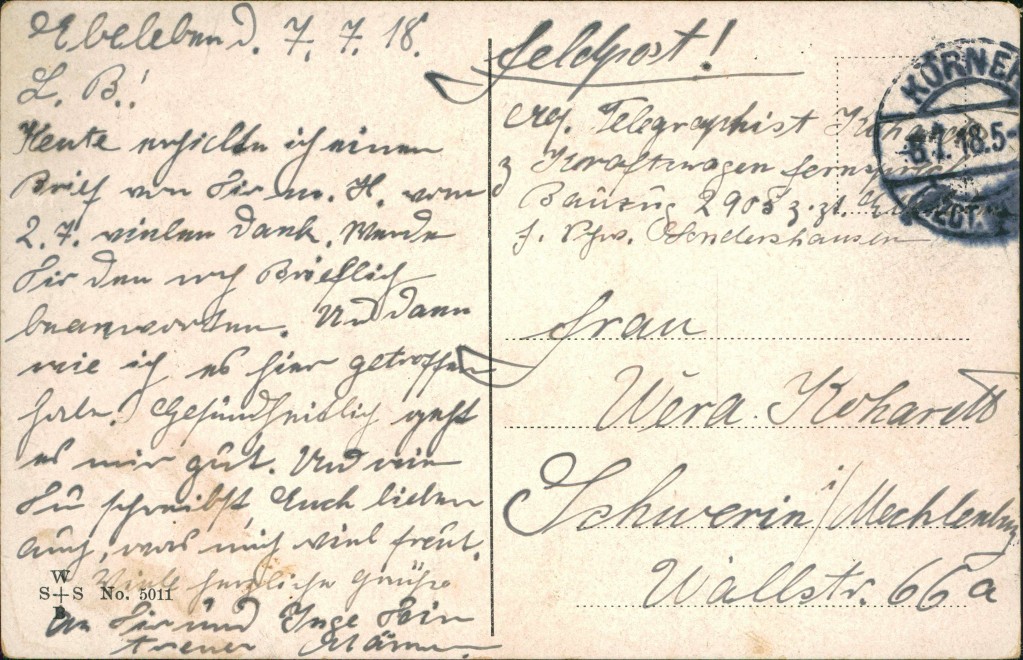 Ebeleben d. 7. 7. 18.
L. B.!
Heute erhielten ich einen
Brief von Dir u. H. vom
2. 7. vielen Dank. Werde
Dir den noch Brieflich
beanworten. Und dann
wie ich es hier getroffen
habe. Gesundheitlich geht
es mir gut. Und wie
Du schreibst Euch lieben
auch, was mich viel freut.
Viele herzliche Grüße
An Dir und Inge Dein
treuer Männe.
W
S+S No. 5011
B
Feldpost!
Telegraphist
Kraftwagen
Bauzug 2905 z. Zt.
Sondershausen
KÖRNER
8.7.18.5-
Frau
Wera Kohardt
Schwerin i/Mechlenburg
Wallstr. 66a